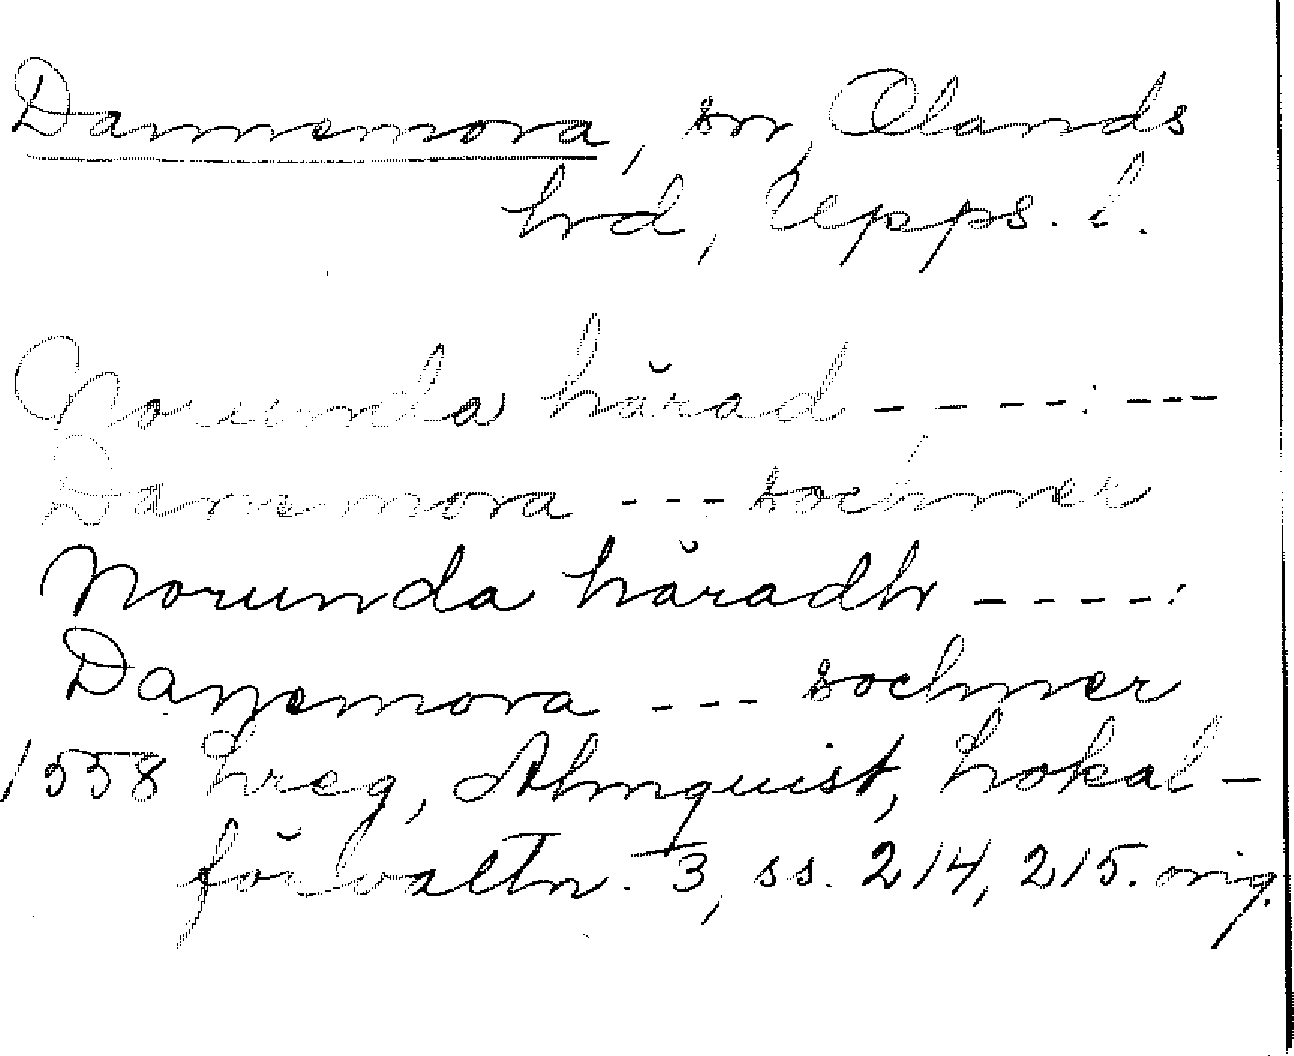 Dannemora, sn, Olands
hrd, Upps. l.
Norunda härad - - - - : - - -
Dannemora - - - sochner
Norunda häradh - - - - :
Dannemora - - - sochner
1558 hreg, Almquist, Lokal-
förvaltn. 3, ss. 214, 215. orig.